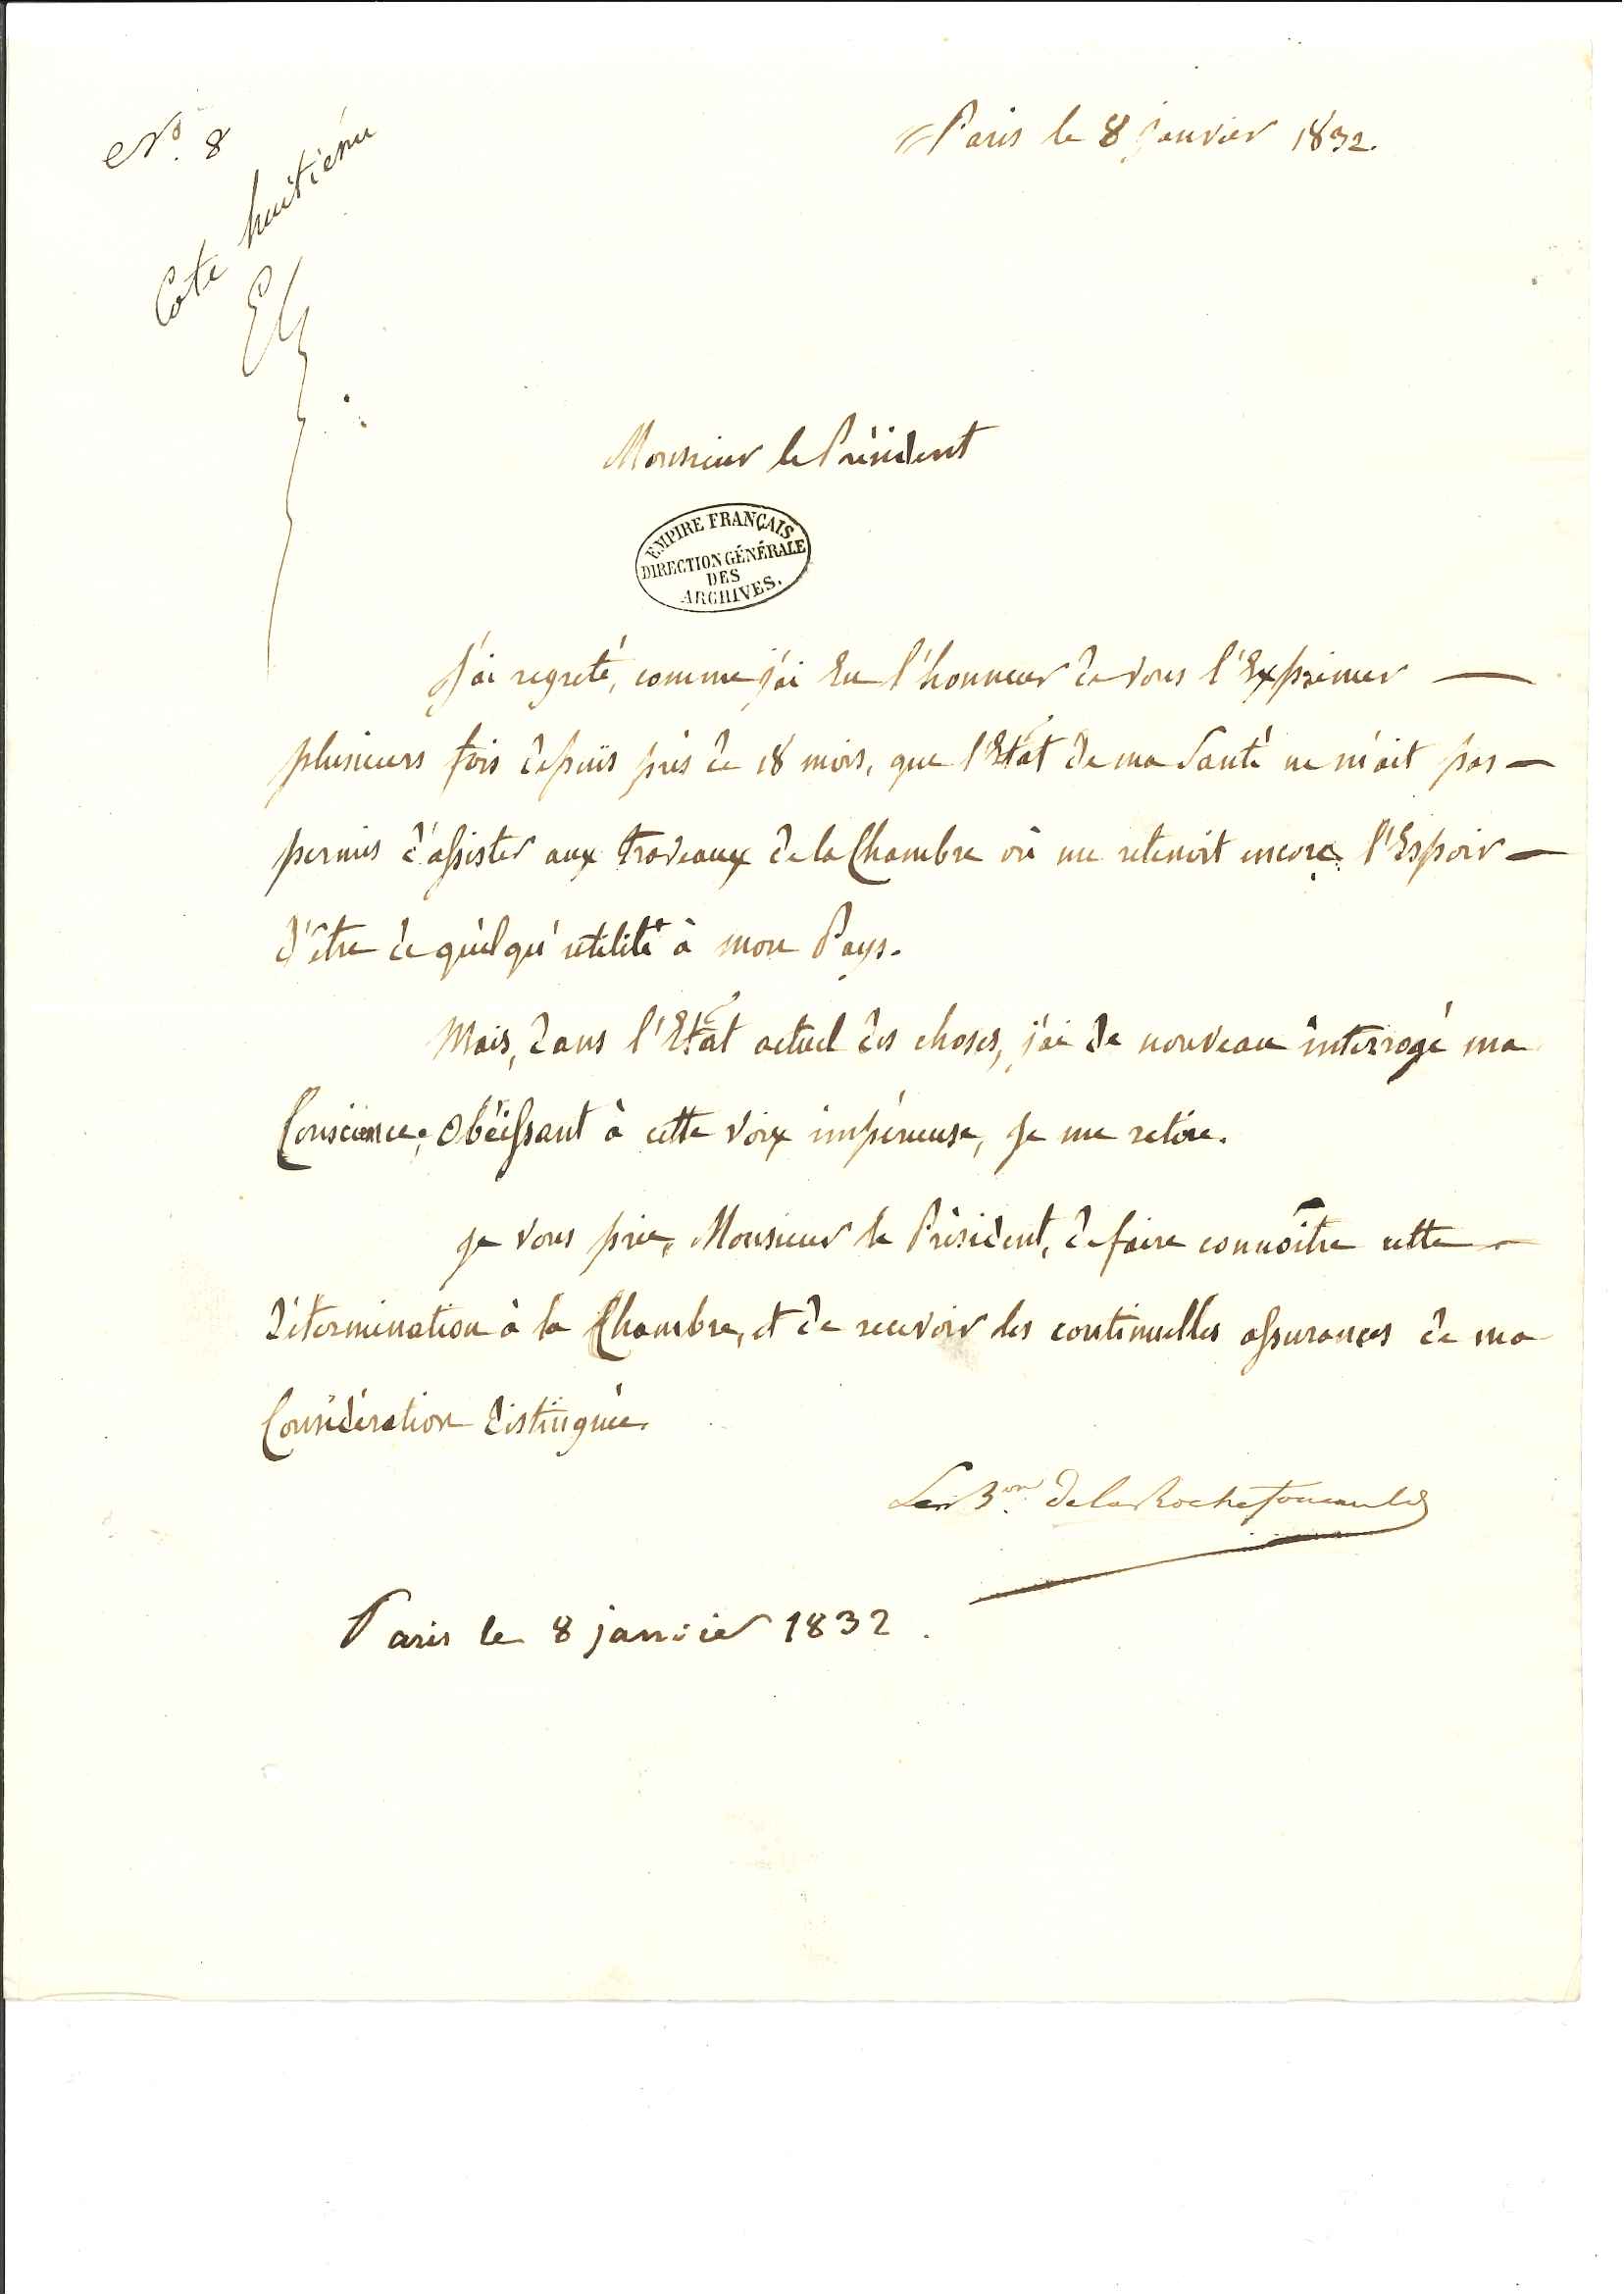 N.o 8
Paris le 8 janvier 1832.
Cote huitième
Monsieur le Président
EMPIRE FRANÇAIS
DIRECTION GÉNÉRALE
DES
ARCHIVES.
J'ai regreté, comme j'ai Eu l'honneur de vous l'Exprimer —
plusieurs fois depuis près de 18 mois, que l'Etat de ma Santé ne m'ait pas —
permis d'assister aux travaux de la Chambre où me retenoit encore l'Espoir —
d'être de quelqu'utilité à mon Pays.
Mais, dans l'Etat actuel des choses, j'ai de nouveau interrogé ma
Conscience; Obéissant à cette voix impérieuse, je me retire.
je vous prie, Monsieur le Président, de faire connoître cette —
détermination à la Chambre, et de recevoir les continuelles assurances de ma
Considération distinguée.
Le B.on de la Rochefoucauld
Paris le 8 janvier 1832.